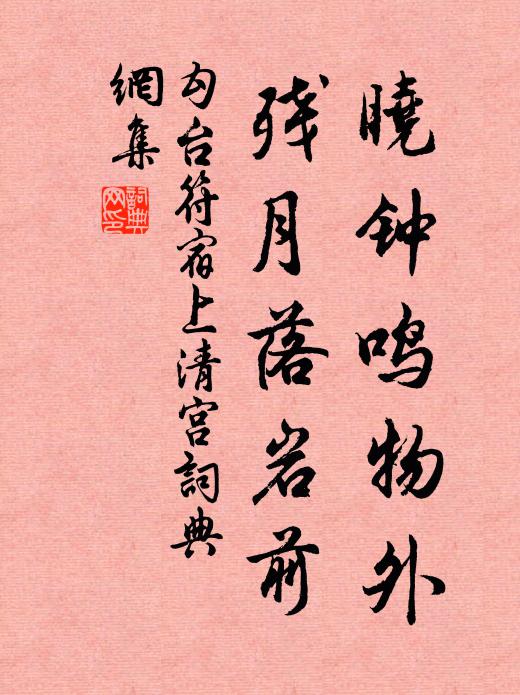 曉钟鸣物外
残月落岩前
勾台符宿上清宫詞典
網集
詞典
网印